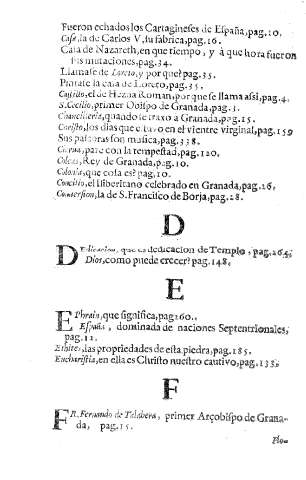 Fueron echados los Cartagineses de España, pag. 10.
Casa, la de Carlos V, su fabrica, pag. 16.
Casa de Nazareth, en que tiempo, y à que hora fueron
sus mutaciones, pag. 34.
Llamase de Loreto, y por què? pag. 35.
Pintase la casa de Loreto, pag. 35.
Castillo, el de Hezna Roman, por que se llama assi, pag. 4.
S. Cecilio, primer Obispo de Granada, pag. 3.
Chancilleria, quando se traxo à Granada, pag. 15.
Christo, los dias que estuvo en el vientre virginal, pag. 159
Sus passos son musica, pag. 338.
pare con la tempestad, pag. 120.
Rey de Granada, pag. 10.
Colonia, que cosa es? pag. 10.
Concilio, el Iliberitano celebrado en Granada, pag. 26.
Conversion, la de S. Francisco de Borja, pag. 28.
D
DEdicacion, que es dedicacion de Templo, pag. 264.
Dios, como puede crecer? pag. 148.
E
EPhrain, que significa, pag 260.
España, dominada de naciones Septentrionales,
pag. 12.
Ethites, las propriedades de esta piedra, pag. 185.
Eucharistia, en ella es Christo nuestro cautivo, pag. 135.
F
FR. Fernando de Talabera, primer Arçobispo de Grana-
da, pag. 15.